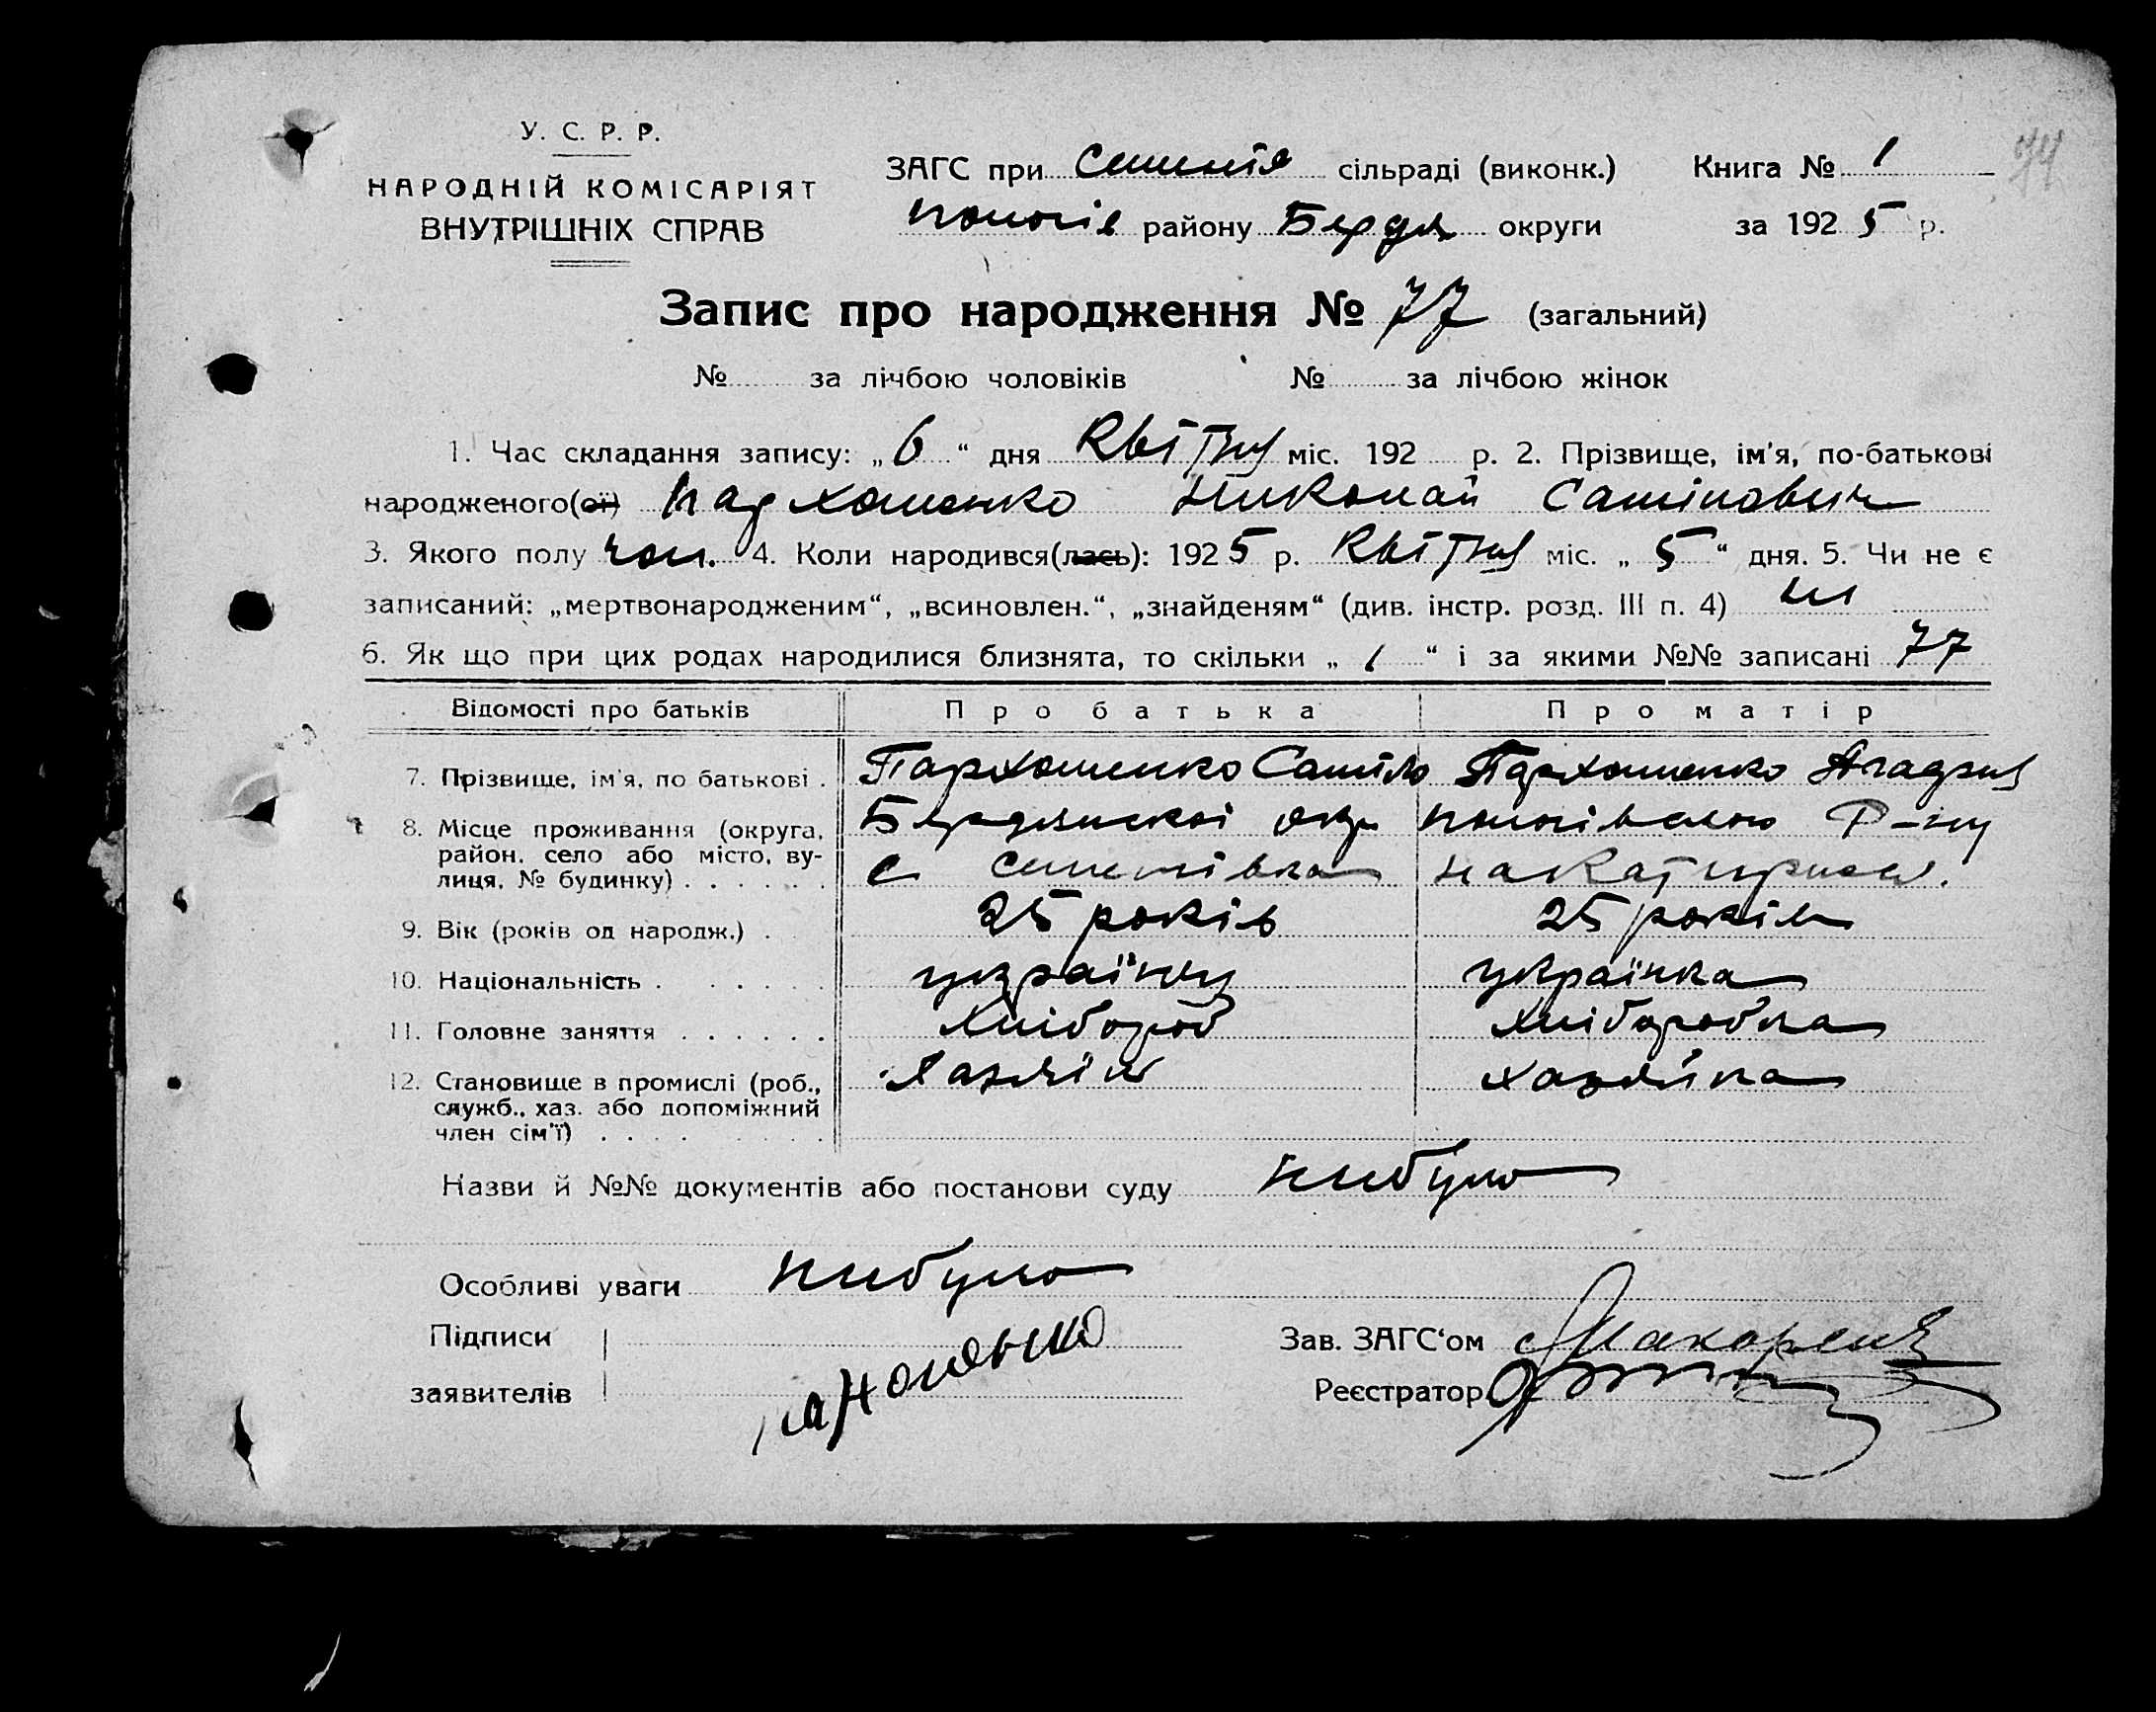 У. С. Р. Р.
НАРОДНІЙ КОМІСАРІЯТ
ВНУТРІШНІХ СПРАВ
ЗАГС при сільраді (виконк.) Книга № 1
74
району Бердя округи за 1925 р.
Запис про народження № 77 (загальний)
№ за лічбою чоловіків № за лічбою жінок
1. Час складання запису: „6“ дня Квітня міс. 192 р. 2. Прізвище, ім'я, по-батькові
народженого(ої) Пархоменко Николай
3. Якого полу чол. 4. Коли народився(лась): 1925 р. Квітня міс. „5“ дня. 5. Чи не є
записаний: „мертвонародженим“, „всиновлен.“, „знайденям“ (див. інстр. розд. III п. 4) ні
6. Як що при цих родах народилися близнята, то скільки „1“ і за якими №№ записані 77
Відомості про батьків Про батька Про матір
7. Прізвище, ім'я, по батькові . Пархоменко Самійло Пархоменко
8. Місце проживання (округа, Бердянської окр Пологівського Р-ну
район, село або місто, ву-
лиця, № будинку) . . . . . . с
9. Вік (років од народж.) . 25 років 25 років
10. Національність . . . . . . українец українка
11. Головне заняття . . . . . . хлібороб хліборобка
12. Становище в промислі (роб., хазяїн хазяйка
служб., хаз. або допоміжний
член сім'ї) . . . . . . . .
Назви й №№ документів або постанови суду небуло
Особливі уваги небуло
Підписи Зав. ЗАГС‘ом
заявителів Реєстратор